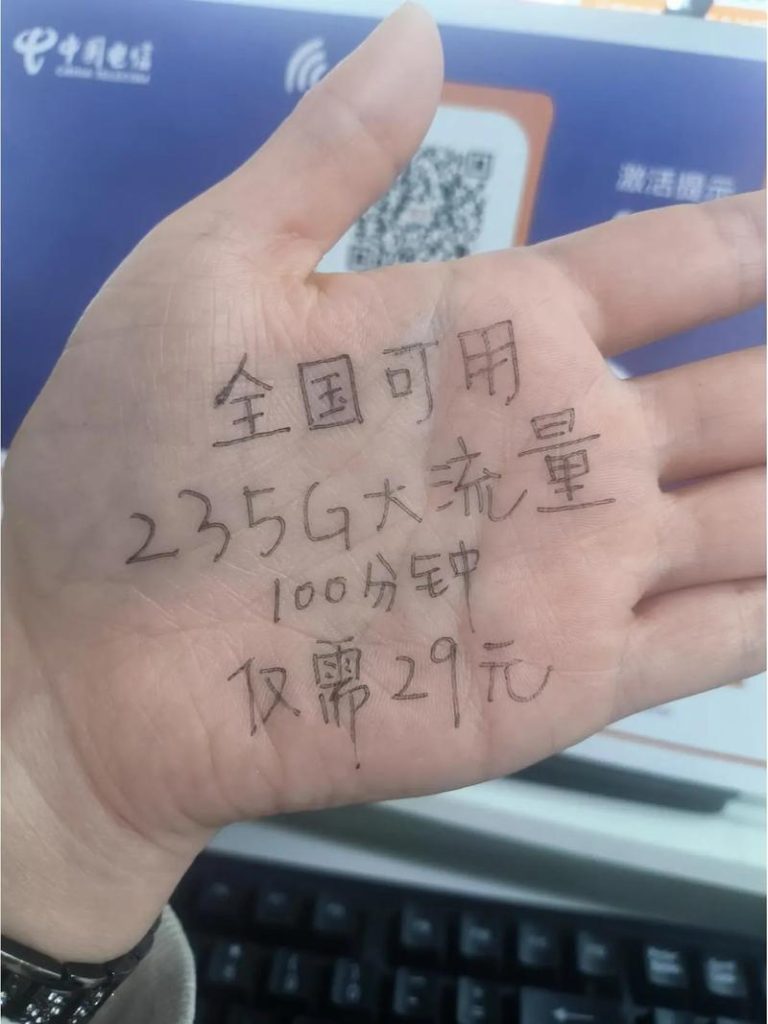 中国电信
CHINA TELECOM
激活提示
全国可用
235G大流量
100分钟
仅需29元